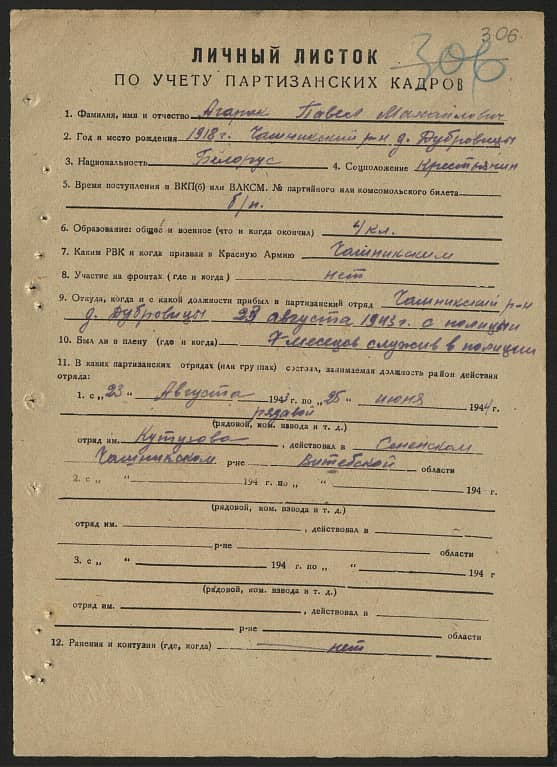 306.
306
ЛИЧНЫЙ ЛИСТОК
ПО УЧЕТУ ПАРТИЗАНСКИХ КАДРОВ
1. Фамилия, имя и отчество Агарок Павел Михайлович
2. Год и место рождения 1918 г. Чашникский р-н д. Дубровицы
3. Национальность Белорус 4. Соцположение Крестьянин
5. Время поступления в ВКП(б) или ВЛКСМ. № партийного или комсомольского билета
б/п.
6. Образование: общее и военное (что и когда окончил) 4 кл.
7. Каким РВК и когда призван в Красную Армию Чашникским
8. Участие на фронтах (где и когда) нет
9. Откуда, когда и с какой должности прибыл в партизанский отряд Чашникский р-н
д. Дубровицы 23 августа 1943 г. с полиции
10. Был ли в плену (где и когда) 7 месецов служив в полиции
11. В каких партизанских отрядах (или группах) состоял, занимаемая должность район действия
отряда:
1. с „23“ Августа 1943 г. по „25“ июня 1944 г.
рядавой
(рядовой, ком. взвода и т. д.)
отряд им. Кутузова, действовал в Сененском
Чашникском р-не Витебской области
2. с „ “ 194 г. по „ “ 194 г.
(рядовой, ком. взвода и т. д.)
отряд им. , действовал в
р-не области
3. с „ “ 194 г. по „ “ 194 г
(рядовой, ком. взвода и т. д.)
отряд им. , действовал в
р-не области
12. Ранения и контузии (где, когда) нет